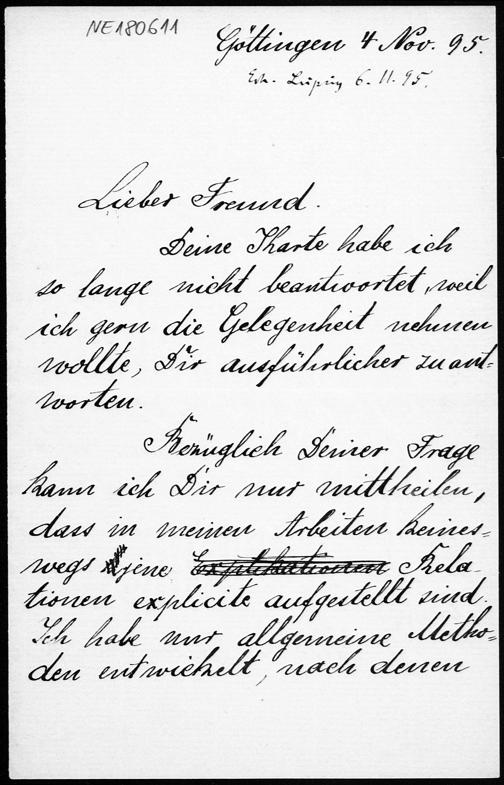 NE180611
Göttingen 4 Nov. 95.
6. 11. 95.
Lieber Freund.
Deine Karte habe ich
so lange nicht beantwortet, weil
ich gern die Gelegenheit nehmen
wollte, Dir ausführlicher zu ant-
worten.
Bezüglich Deiner Frage
kann ich Dir nur mittheilen,
dass in meinen Arbeiten keines-
wegs jene Explikationen Rela-
tionen explicite aufgestellt sind.
Ich habe nur allgemeine Metho-
den entwickelt, nach denen